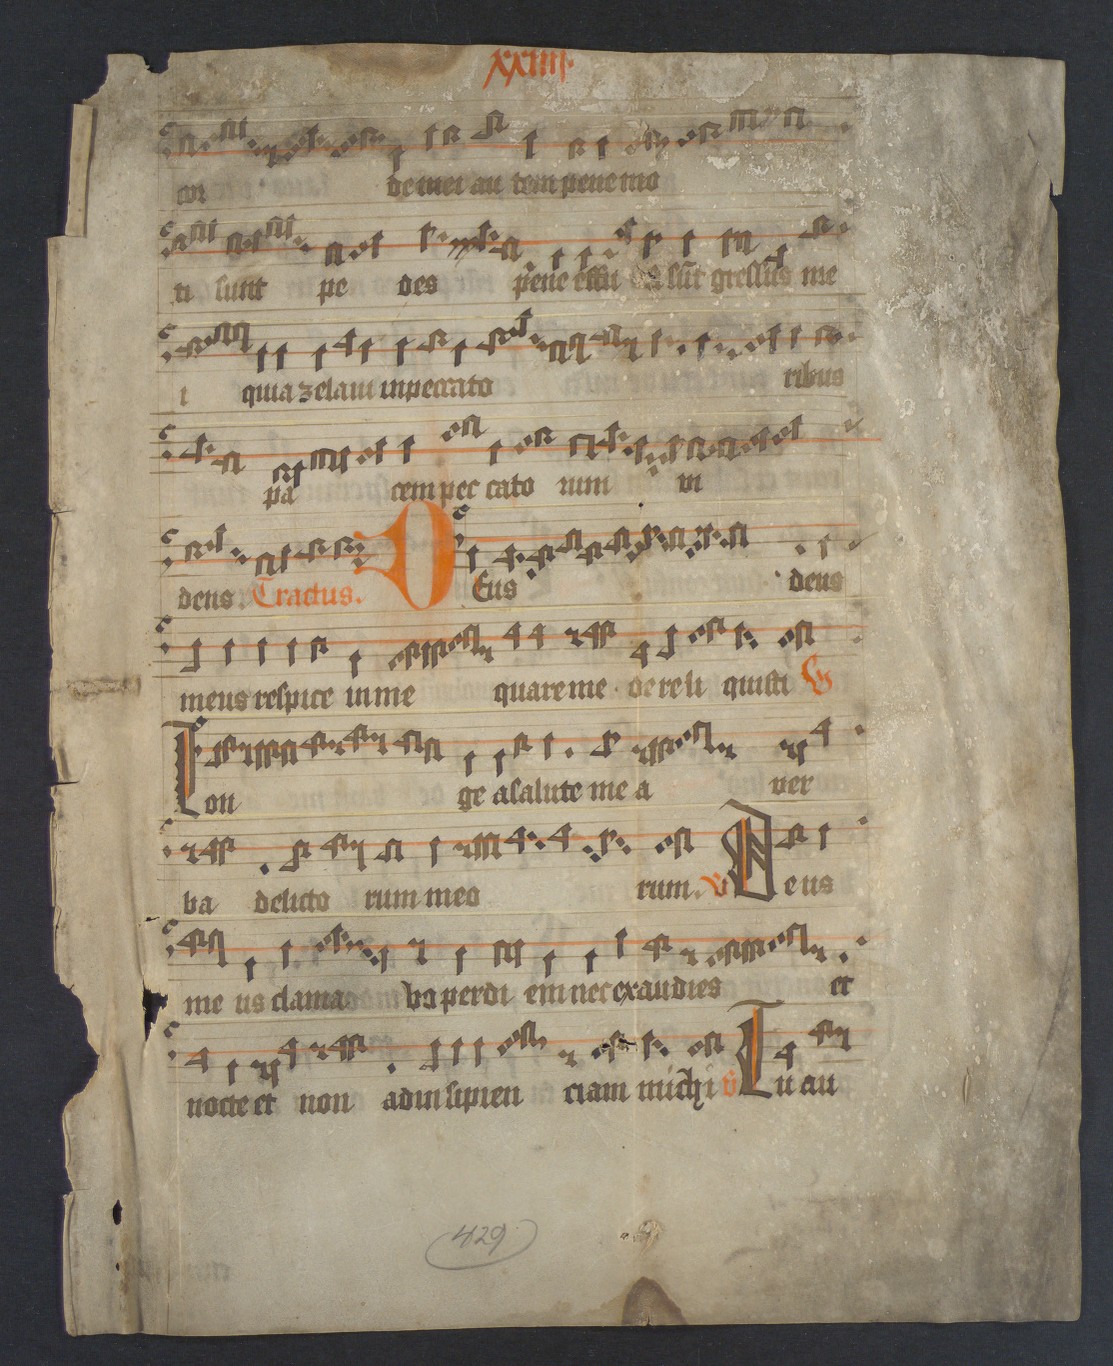 xxiiii.
cor de mei au tem pene mo
ti sunt pe des pene effu si sūt gressus me
i quia zelaui in peccato ribus
pa cem pec cato rum vi
dens. Tractus. Deus deus
meus respice in me quare me de reli quisti V
Lon ge a salute me a ver
ba delicto rum meo rum. V Deus
me us clama bo per di em nec exaudies et
nocte et non ad in sipien ciam michi V Tu au
429